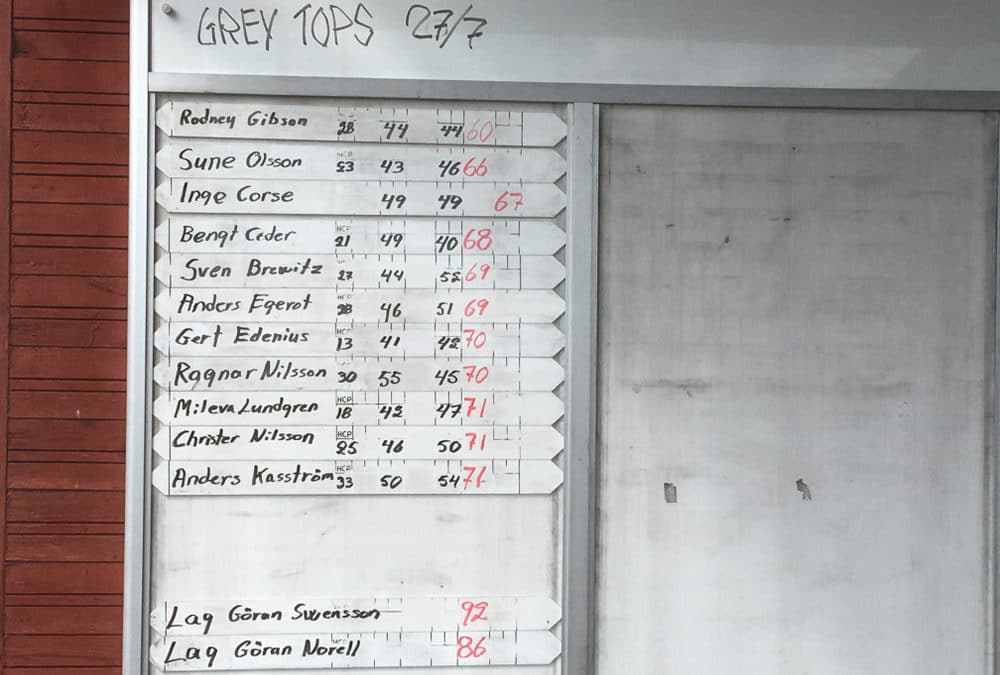 GREY TOPS 27/7
Rodney Gibson 28 44 44 60
Sune Olsson HCP 23 43 46 66
Inge Corse 49 49 67
Bengt Ceder HCP 21 49 40 68
Sven Brewitz 27 44 52 69
Anders Egerot HCP 28 46 51 69
Gert Edenius HCP 13 41 42 70
Ragnar Nilsson 30 55 45 70
Mileva Lundgren HCP 18 42 47 71
Christer Nilsson HCP 25 46 50 71
Anders Kasström HCP 33 50 54 71
Lag Göran Swensson 92
Lag Göran Norell 86